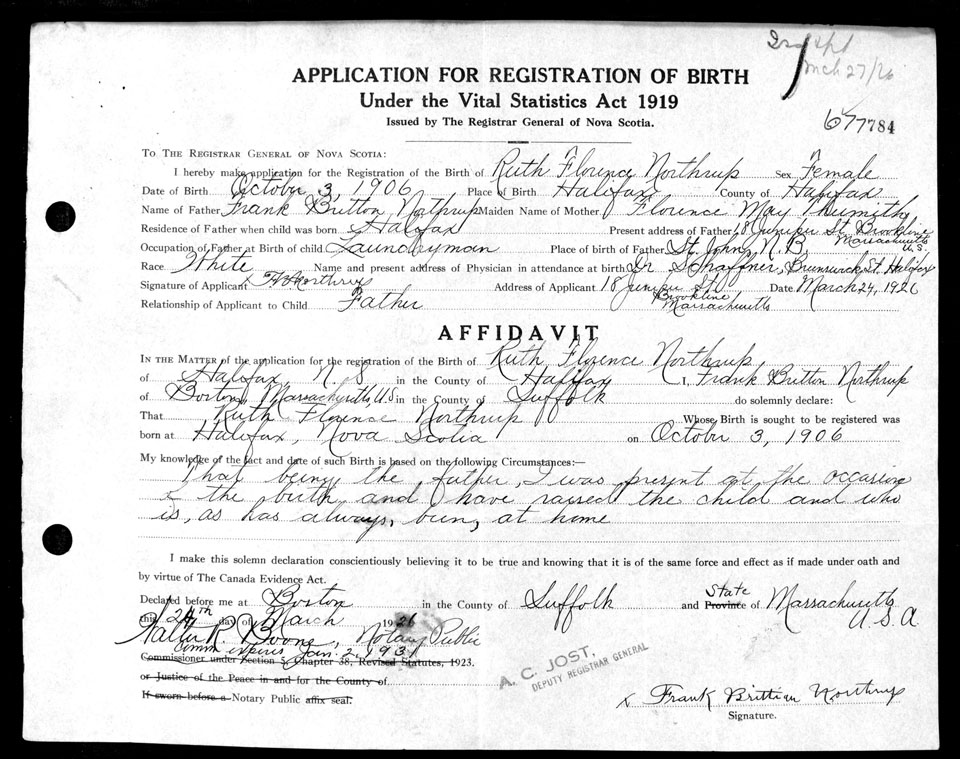 Mch 27/26
APPLICATION FOR REGISTRATION OF BIRTH
Under the Vital Statistics Act 1919
Issued by The Registrar General of Nova Scotia.
677784
TO THE REGISTRAR GENERAL OF NOVA SCOTIA:
I hereby make application for the Registration of the Birth of Ruth Florence Northrup Sex Female
Date of Birth October 3, 1906 Place of Birth Halifax County of Halifax
Name of Father Frank Britton Nothrup Maiden Name of Mother Florence May
Residence of Father when child was born Halifax Present address of Father 18 Juniper St. Brookline
Massachusetts
U.S.
Occupation of Father at Birth of child Laundryman Place of birth of Father St. John, N.B.
Race White Name and present address of Physician in attendance at birth Dr Schaffner, Brunswick St. Halifax
Signature of Applicant Address of Applicant 18 Juniper St. Date March 24, 1926
Brookline
Massachusetts
Relationship of Applicant to Child Father
AFFIDAVIT
IN THE MATTER of the application for the registration of the Birth of Ruth Florence Northrup
of Halifax N. S in the County of Halifax I, Frank Britton Northrup
of Boston, Massachusetts, U.S in the County of Suffolk do solemnly declare:
That Ruth Florence Northrup Whose Birth is sought to be registered was
born at Halifax, Nova Scotia on October 3, 1906
My knowledge of the fact and date of such Birth is based on the following Circumstances:—
That being the father, I was present at the occasion
of the birth and I have raised the child and who
is, as has always, been, at home
I make this solemn declaration conscientiously believing it to be true and knowing that it is of the same force and effect as if made under oath and
by virtue of The Canada Evidence Act.
Declared before me at Boston in the County of Suffolk and State Province of Massachusetts
U.S.A
this 24th day of March 1926
Walter R. Boone, Notary Public
Comm expires Jan. 2, 1931
Commissioner under Section 5, Chapter 38, Revised Statutes, 1923.
or Justice of the Peace in and for the County of
If sworn before a Notary Public affix seal.
A. C. JOST,
DEPUTY REGISTRAR GENERAL
x Frank Brittian Northrup
Signature.